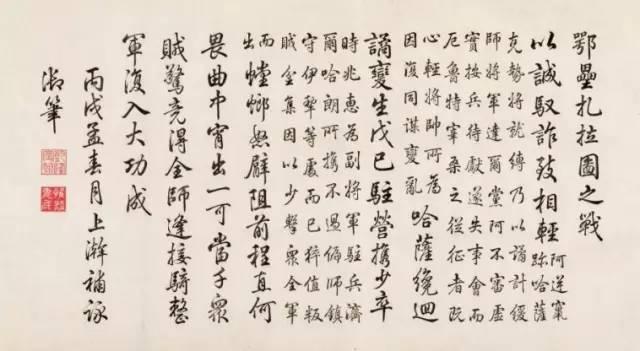 鄂壘扎拉圖之戰
以誠馭詐致相輕 阿逆竄
跡哈薩
克勢將就縛乃以譎計緩
師將軍達爾黨阿不審虛
實按兵待獻遂失事會而
厄魯特宰桑之從征者既
心輕將帥所為
因復同謀變亂 哈薩纔迴
譎變生戊已駐營攜少卒
時兆惠為副將軍駐兵濟
爾哈朗所攜不過偏師鎮
守伊犁等處而已猝值叛
賊坌集因以少擊眾全軍
而
出 螳螂怒臂阻前程直何
畏曲中宵出一可當千眾
賊驚竟得全師逢接騎整
軍復入大功成
丙戌孟春月上澣補詠
御筆